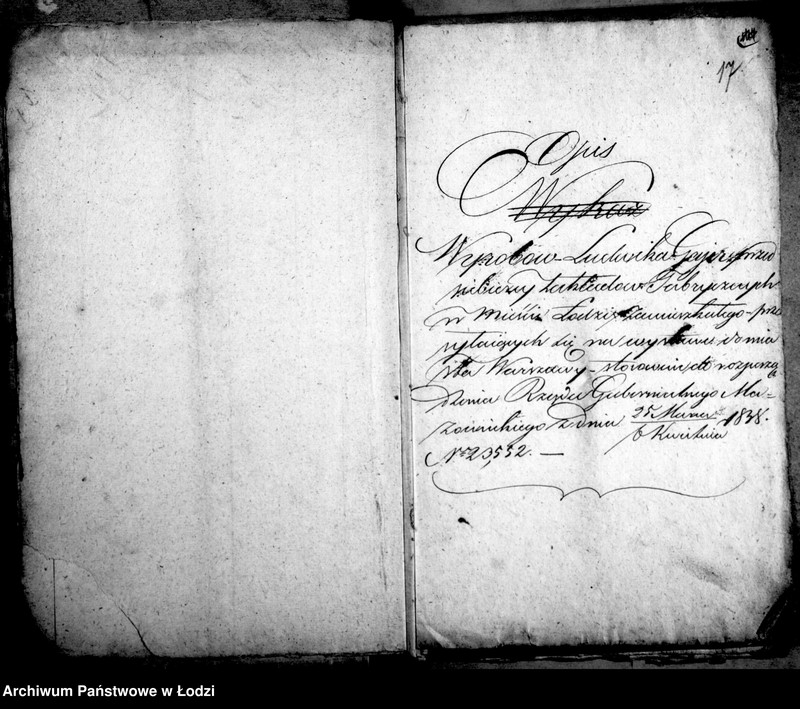 17
Opis
Wykaz
Wyrobów Ludwika Gajer przed
siębiercy Zakładów Fabrycznych
w Mieście Łodzi zamieszkałego – prze
syłaiących się na wystawę do mia
sta Warszawy – stosownie do rozporzą
dzenia Rządu Gubernialnego Ma=
zowieckiego z dnia 25 Marca 1838.
6 Kwietnia
No 23,552. —
Archiwum Państwowe w Łodzi